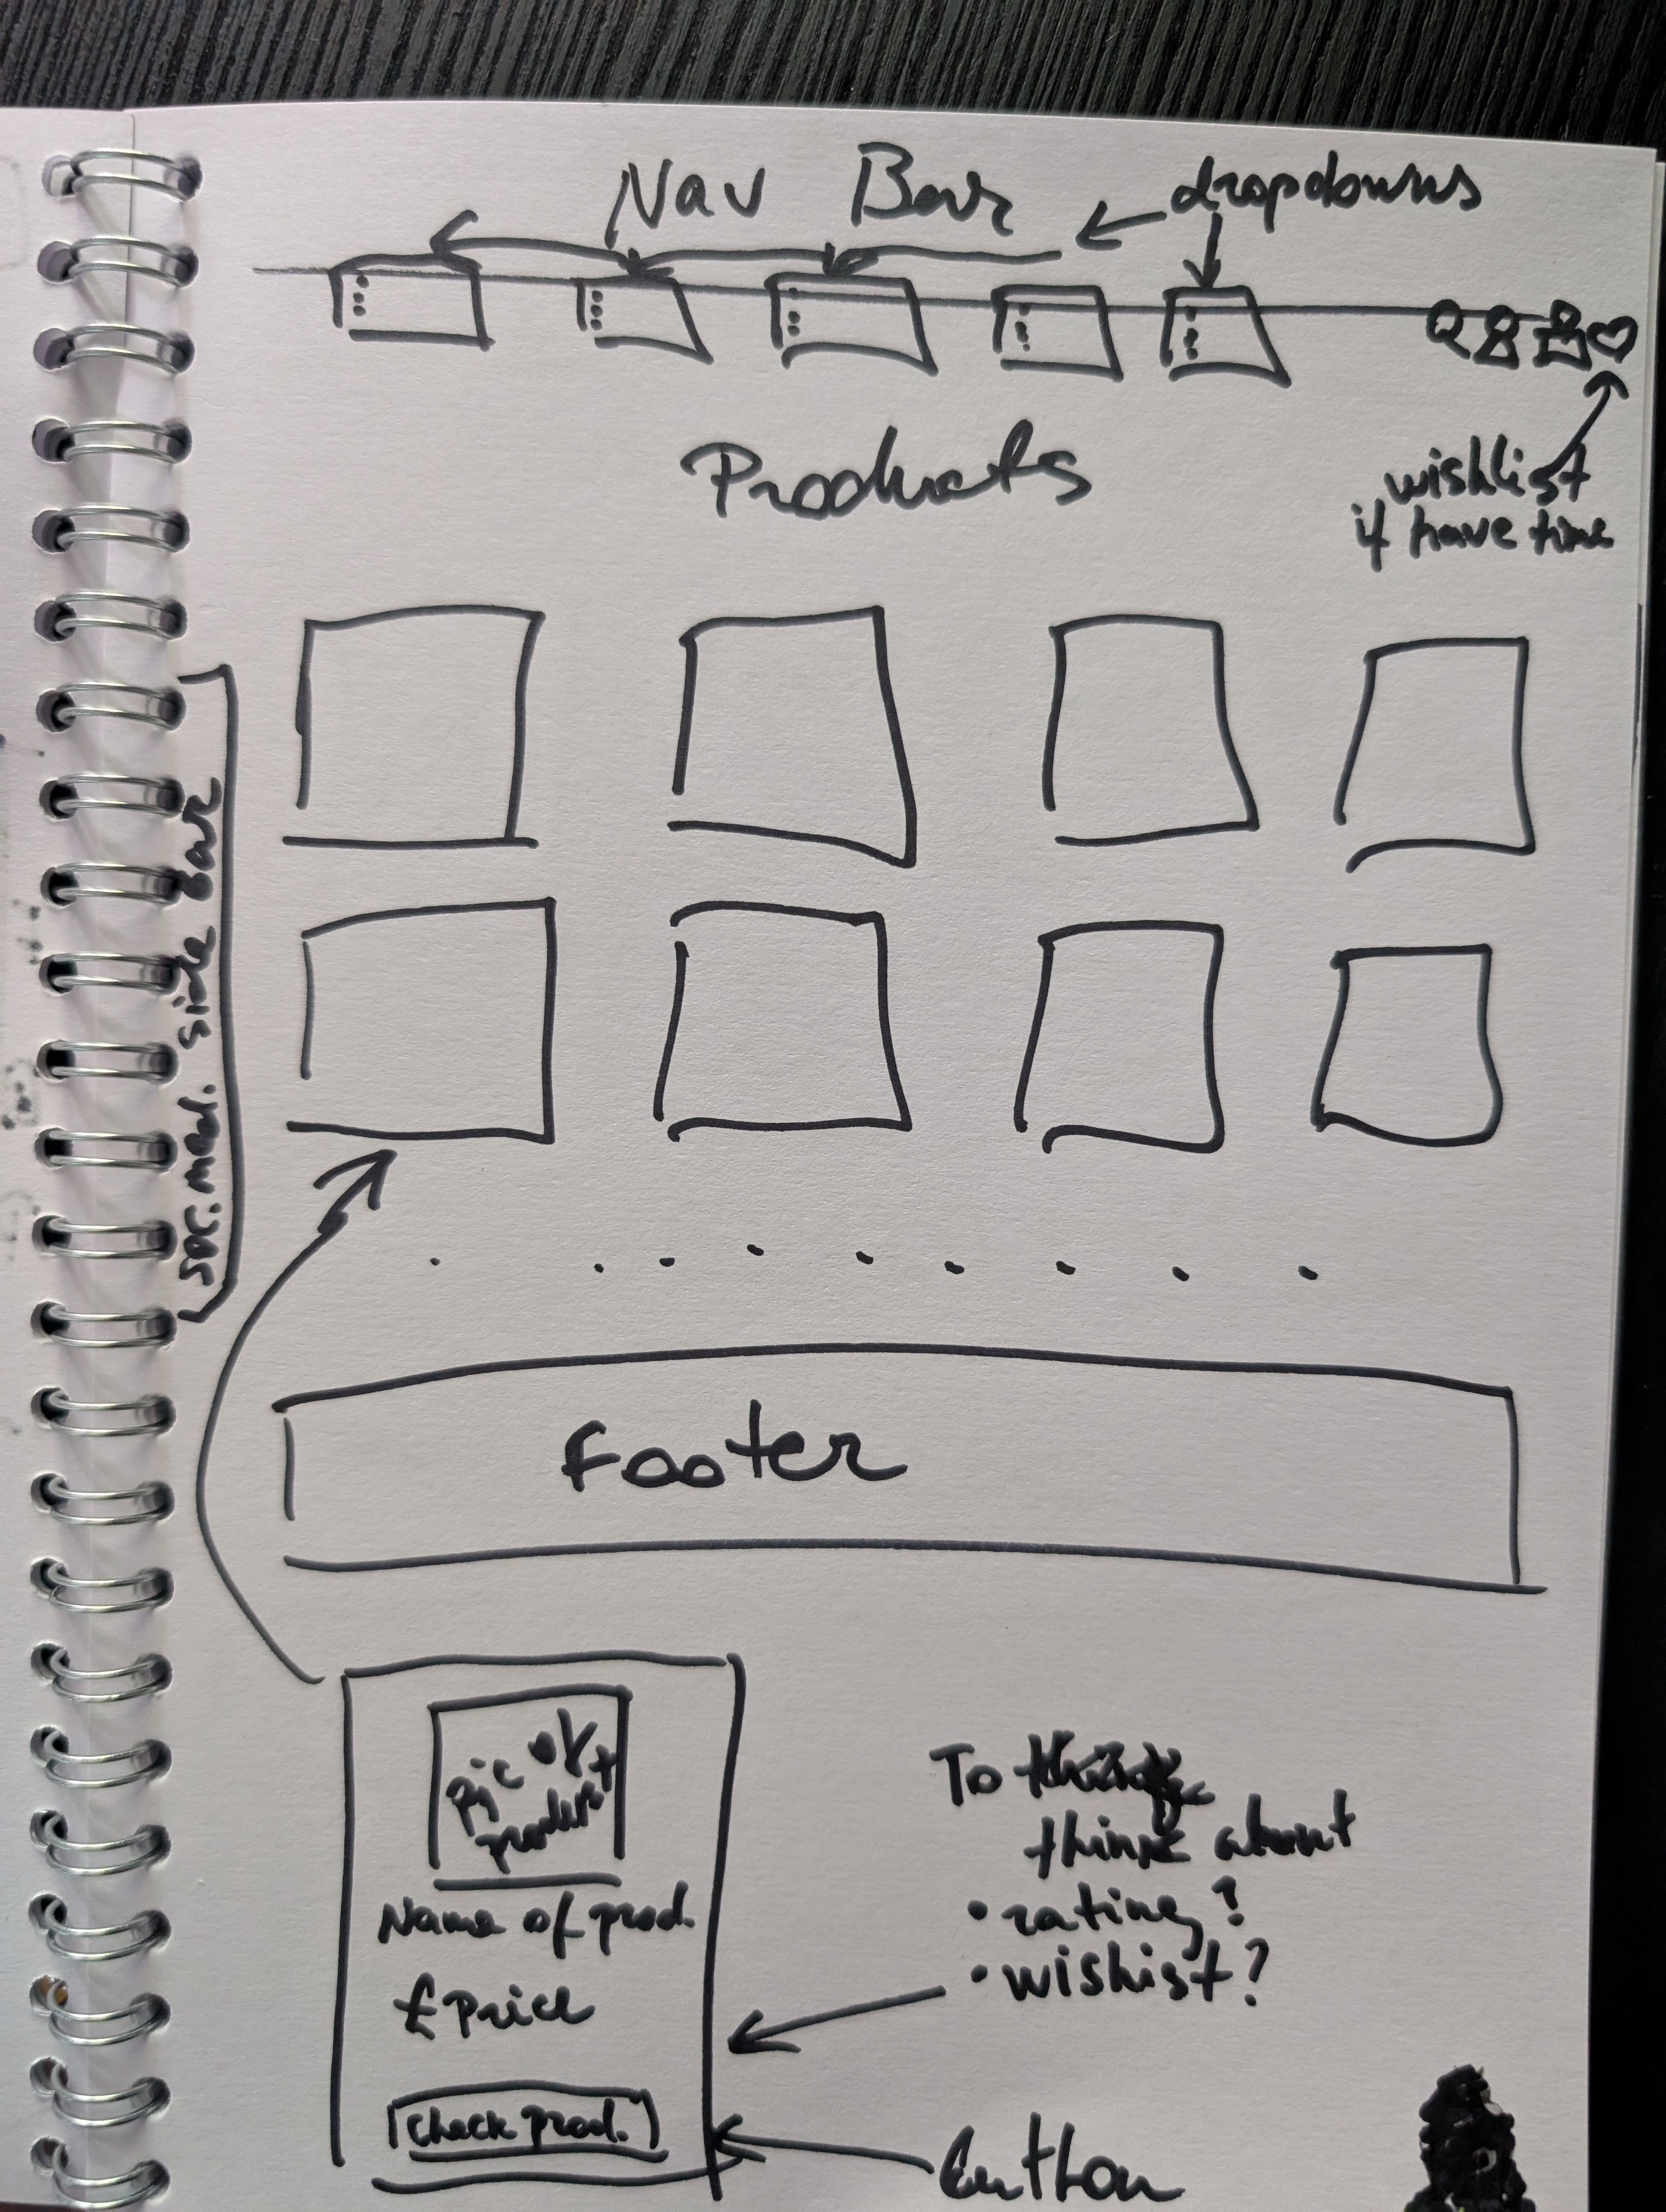 Nav Bar
dropdowns
Products
wishlist
if have time
soc. med. side bar
Footer
pic of
product
Name of prod.
£price
Check prod.
To
think about
• rating?
• wishist?
button